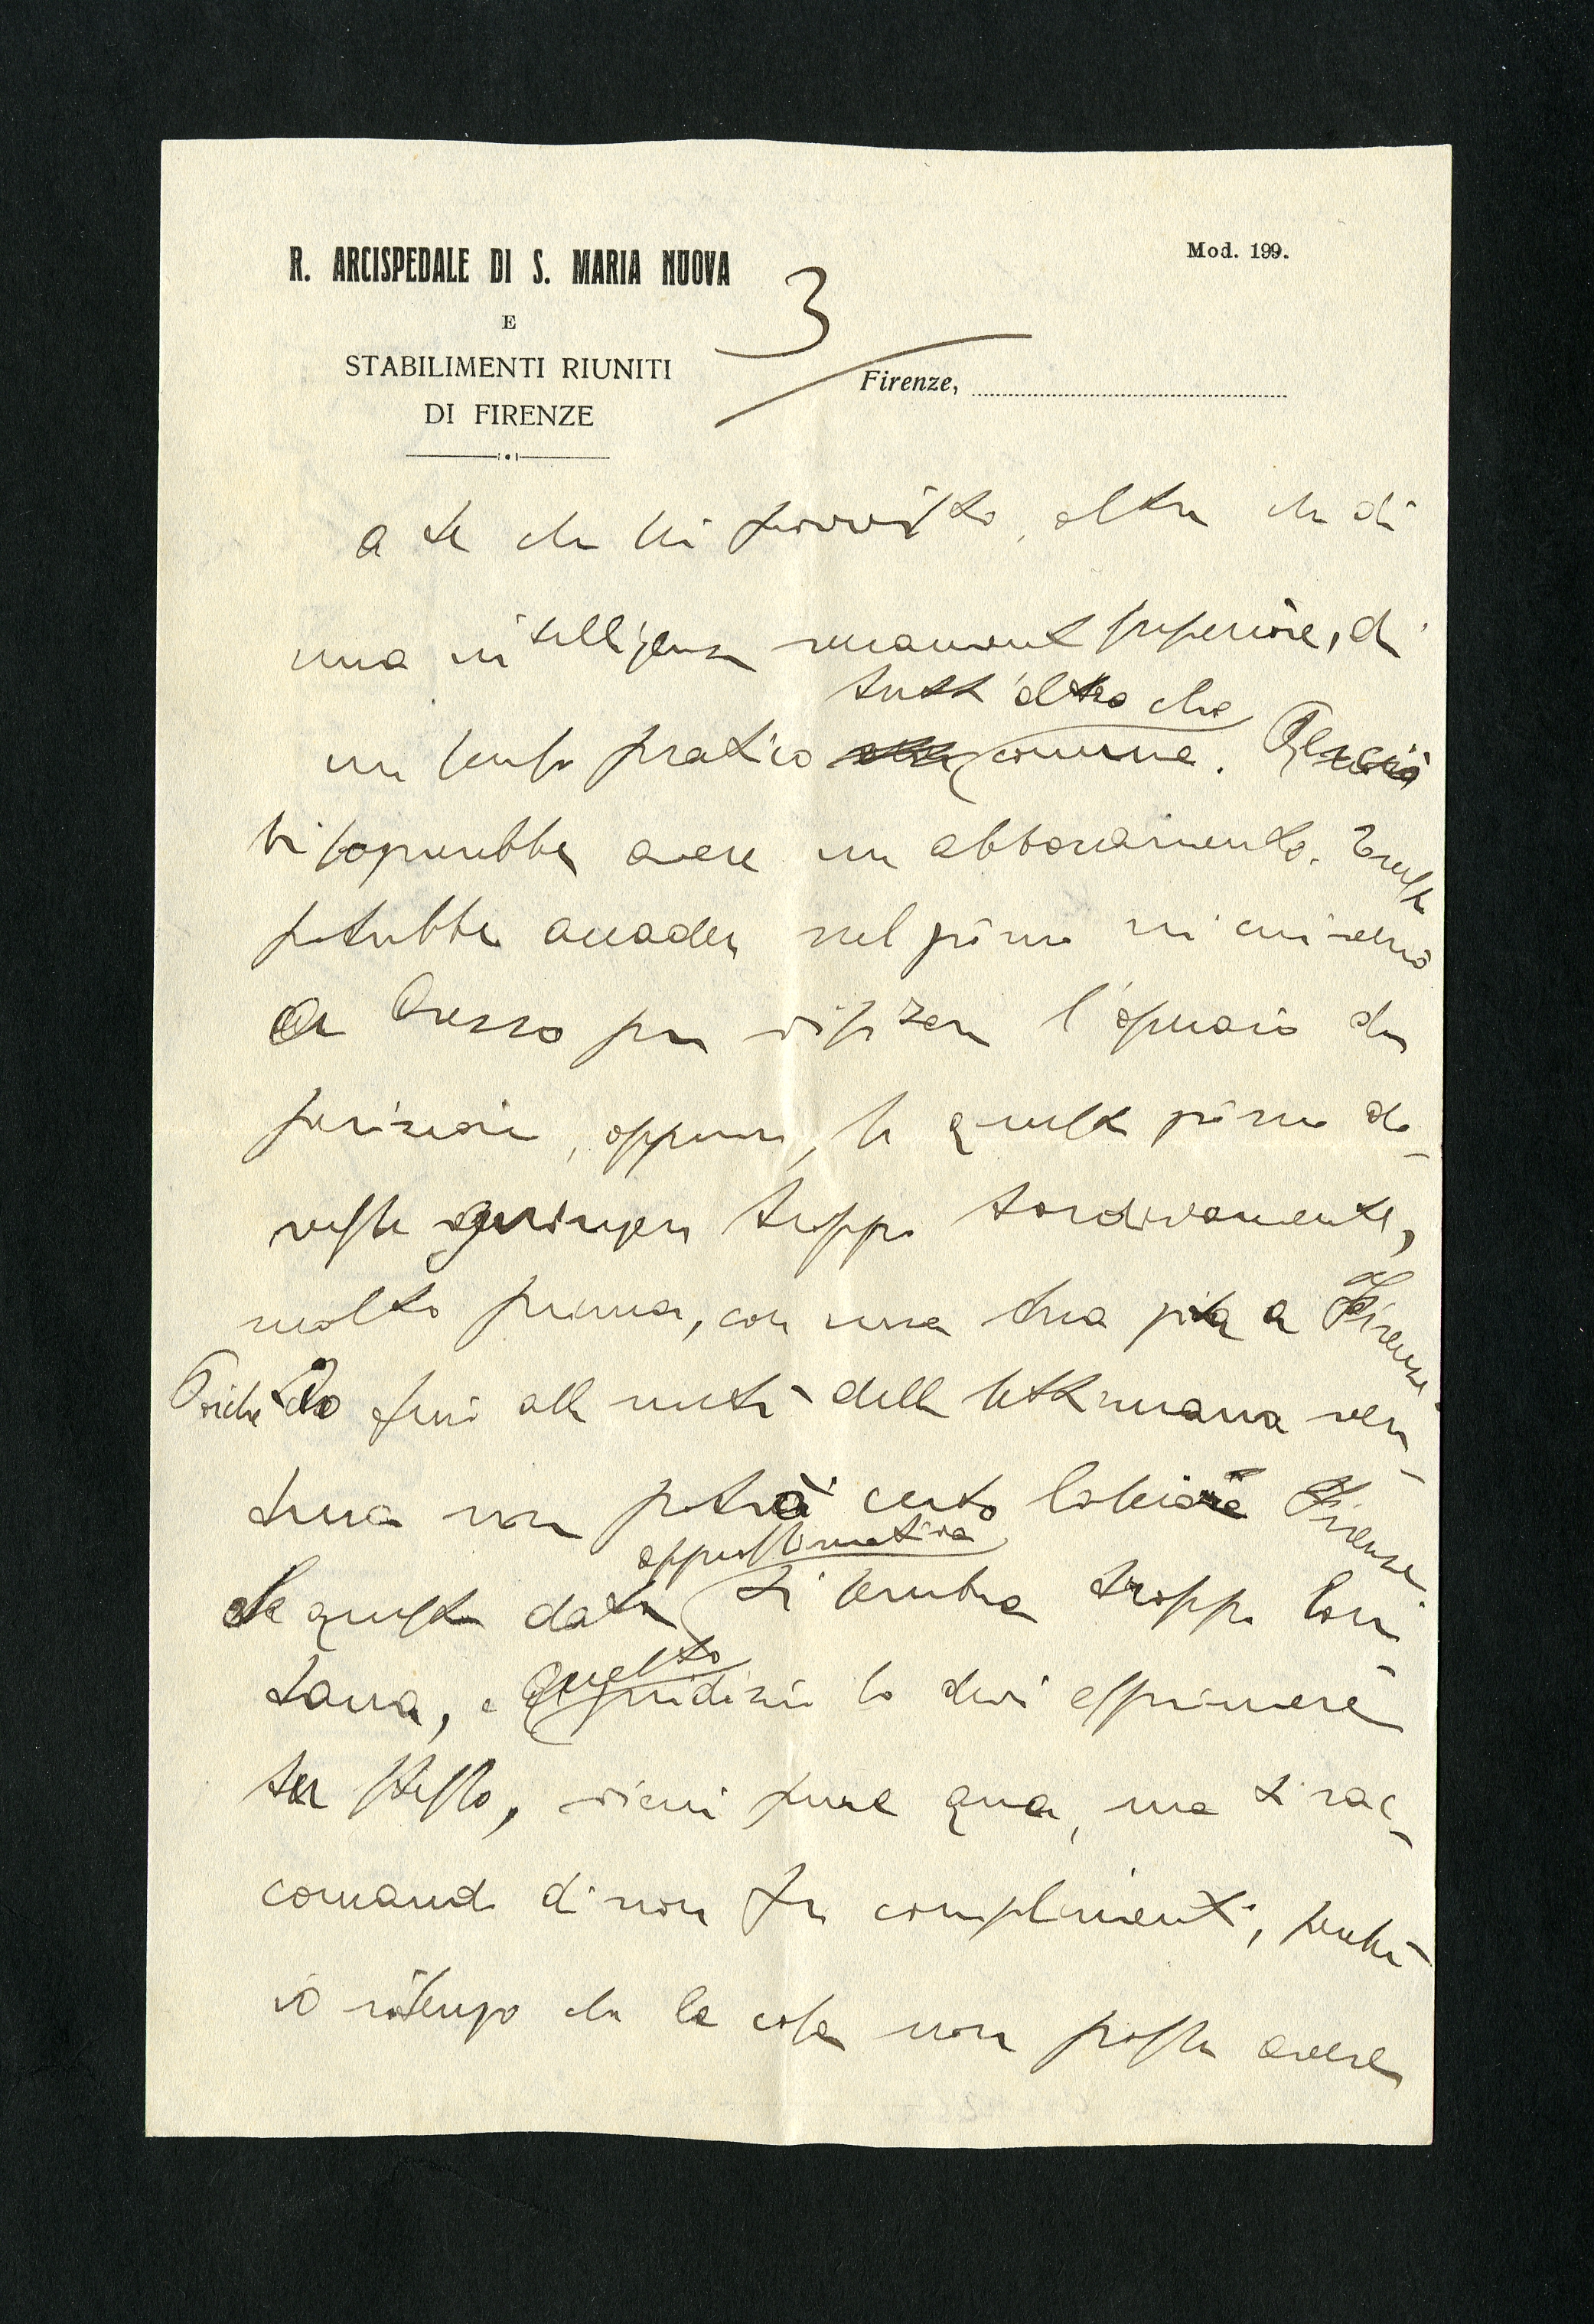 R. ARCISPEDALE DI S. MARIA NUOVA
E
STABILIMENTI RIUNITI
DI FIRENZE
Mod. 199.
3
Firenze,
a te che sei fornito, oltre che di
una intelligenza veramente superiore, di
un senso pratico tutt'altro che comune. Perciò
bisognerebbe avere un abboccamento. Questo
potrebbe accadere nel giorno in cui verrò
a Arezzo per visitare l'operaio
oppure, se questo giorno do-
vesse giungere troppo tardivamente,
molto prima, con una tua gita a Firenze
Poichè io fino alla metà della settimana ven-
tura non potrò certo lasciare Firenze
Se questa data approssimativa ti sembra troppo lon-
tana, e questo giudizio lo devi esprimere
tu stesso, vieni pure qua, ma ti rac-
comando di non far complimenti, perchè
io ritengo che la cosa non possa avere